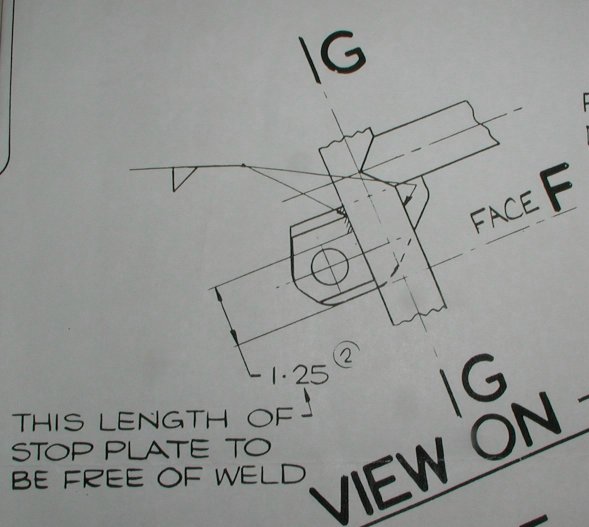 G
FACE F
1·25 2
G
THIS LENGTH OF
STOP PLATE TO
BE FREE OF WELD
VIEW ON